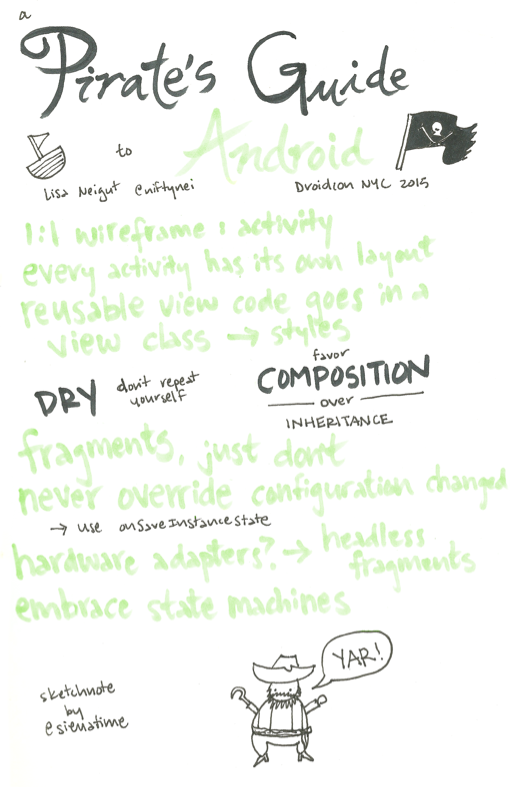 a
Pirate's Guide
to Android
Lisa Neigut @niftynei
Droidcon NYC 2015
1:1 wireframe : activity
every activity has its own layout
reusable view code goes in a
view class → styles
DRY don't repeat
yourself
favor
COMPOSITION
over
INHERITANCE
fragments, just don't
never override configuration changed
→ use onSaveInstanceState
hardware adapters? → headless
fragments
embrace state machines
YAR!
sketchnote
by
@sienatime